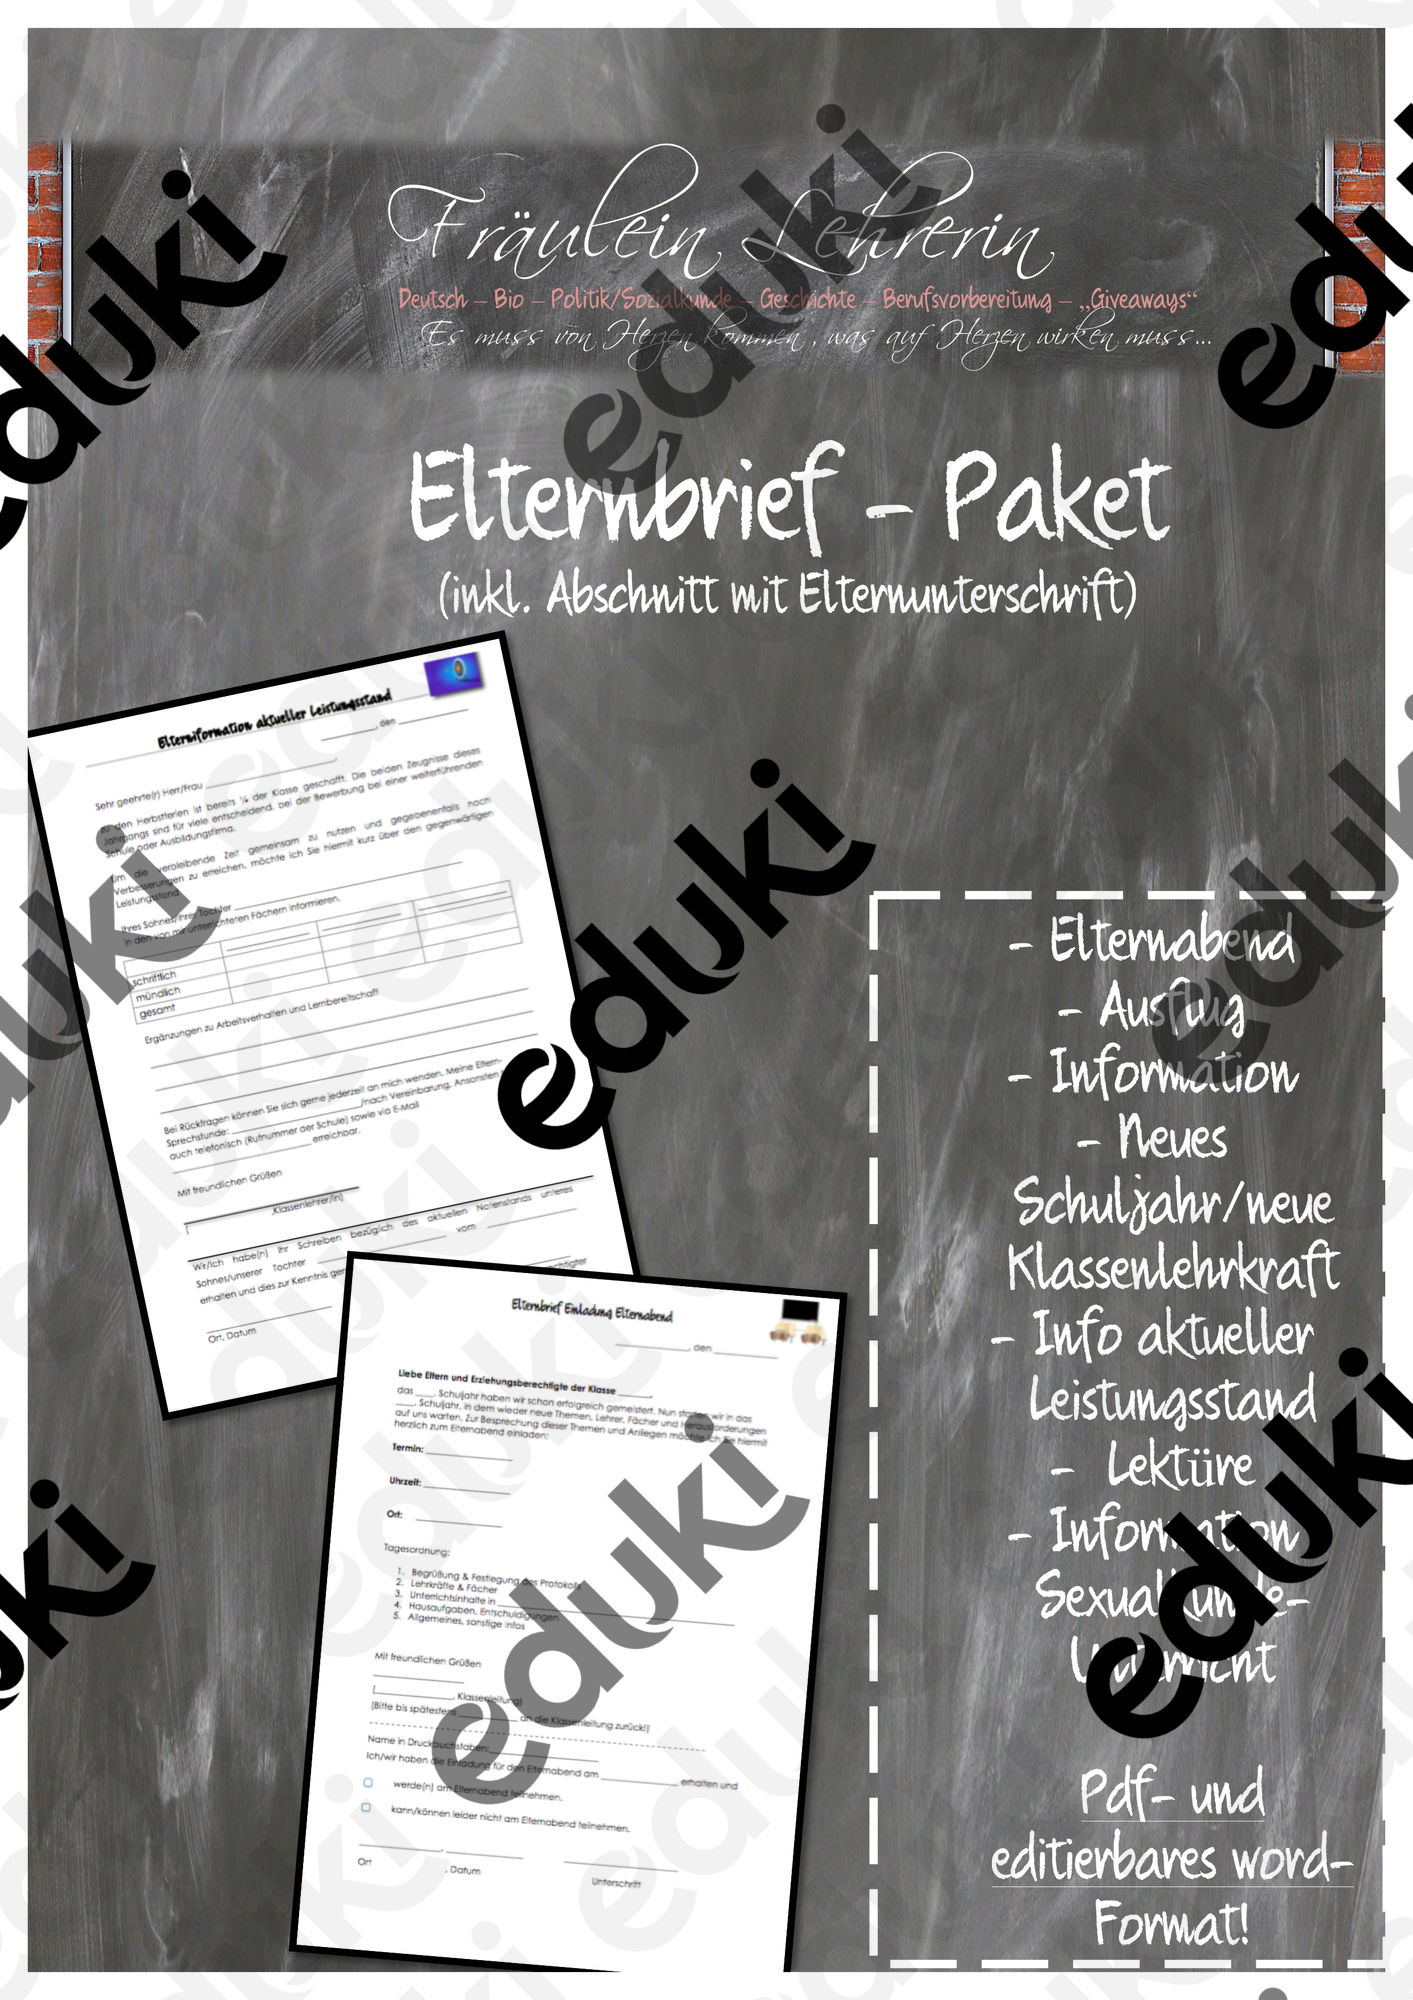 Fräulein Lehrerin
Deutsch – Bio – Politik/Sozialkunde – Geschichte – Berufsvorbereitung – „Giveaways“
Es muss von Herzen kommen, was auf Herzen wirken muss...
Elternbrief - Paket
(inkl. Abschnitt mit Elternunterschrift)
Elterniformation aktueller Leistungsstand
__________, den __________
Sehr geehrte(r) Herr/Frau __________
zu den Herbstferien ist bereits ¼ der Klasse geschafft. Die beiden Zeugnisse dieses
Jahrgangs sind für viele entscheidend, bei der Bewerbung bei einer weiterführenden
Schule oder Ausbildungsfirma.
Um die verbleibende Zeit gemeinsam zu nutzen und gegebenenfalls noch
Verbesserungen zu erreichen, möchte ich Sie hiermit kurz über den gegenwärtigen
Leistungsstand
Ihres Sohnes/Ihrer Tochter __________
in den von mir unterrichteten Fächern informieren.
schriftlich
mündlich
gesamt
Ergänzungen zu Arbeitsverhalten und Lernbereitschaft
Bei Rückfragen können Sie sich gerne jederzeit an mich wenden. Meine Eltern-
Sprechstunde: __________/nach Vereinbarung. Ansonsten
auch telefonisch (Rufnummer der Schule) sowie via E-Mail
__________ erreichbar.
Mit freundlichen Grüßen
(__________, Klassenlehrer/in)
Wir/Ich habe(n) Ihr Schreiben bezüglich des aktuellen Notenstands unseres
Sohnes/unserer Tochter __________ vom __________
erhalten und dies zur Kenntnis
Ort, Datum
Elternbrief Einladung Elternabend
__________, den __________
Liebe Eltern und Erziehungsberechtigte der Klasse ______,
das ____. Schuljahr haben wir schon erfolgreich gemeistert. Nun starten wir in das
____. Schuljahr, in dem wieder neue Themen, Lehrer, Fächer und Herausforderungen
auf uns warten. Zur Besprechung dieser Themen und Anliegen möchte ich Sie hiermit
herzlich zum Elternabend einladen:
Termin: __________
Uhrzeit: __________
Ort: __________
Tagesordnung:
1. Begrüßung & Festlegung des Protokolls
2. Lehrkräfte & Fächer
3. Unterrichtsinhalte in __________
4. Hausaufgaben, Entschuldigungen
5. Allgemeines, sonstige Infos
Mit freundlichen Grüßen
(__________, Klassenleitung)
(Bitte bis spätestens __________ an die Klassenleitung zurück!)
Name in Druckbuchstaben: __________
Ich/wir haben die Einladung für den Elternabend am __________ erhalten und
werde(n) am Elternabend teilnehmen.
kann/können leider nicht am Elternabend teilnehmen.
Ort , Datum Unterschrift
- Elternabend
- Ausflug
- Information
- Neues
Schuljahr/neue
Klassenlehrkraft
- Info aktueller
Leistungsstand
- Lektüre
- Information
Sexualkunde-
Unterricht
Pdf- und
editierbares word-
Format!
eduki
eduki
eduki
eduki
eduki
eduki
eduki
eduki
eduki
eduki